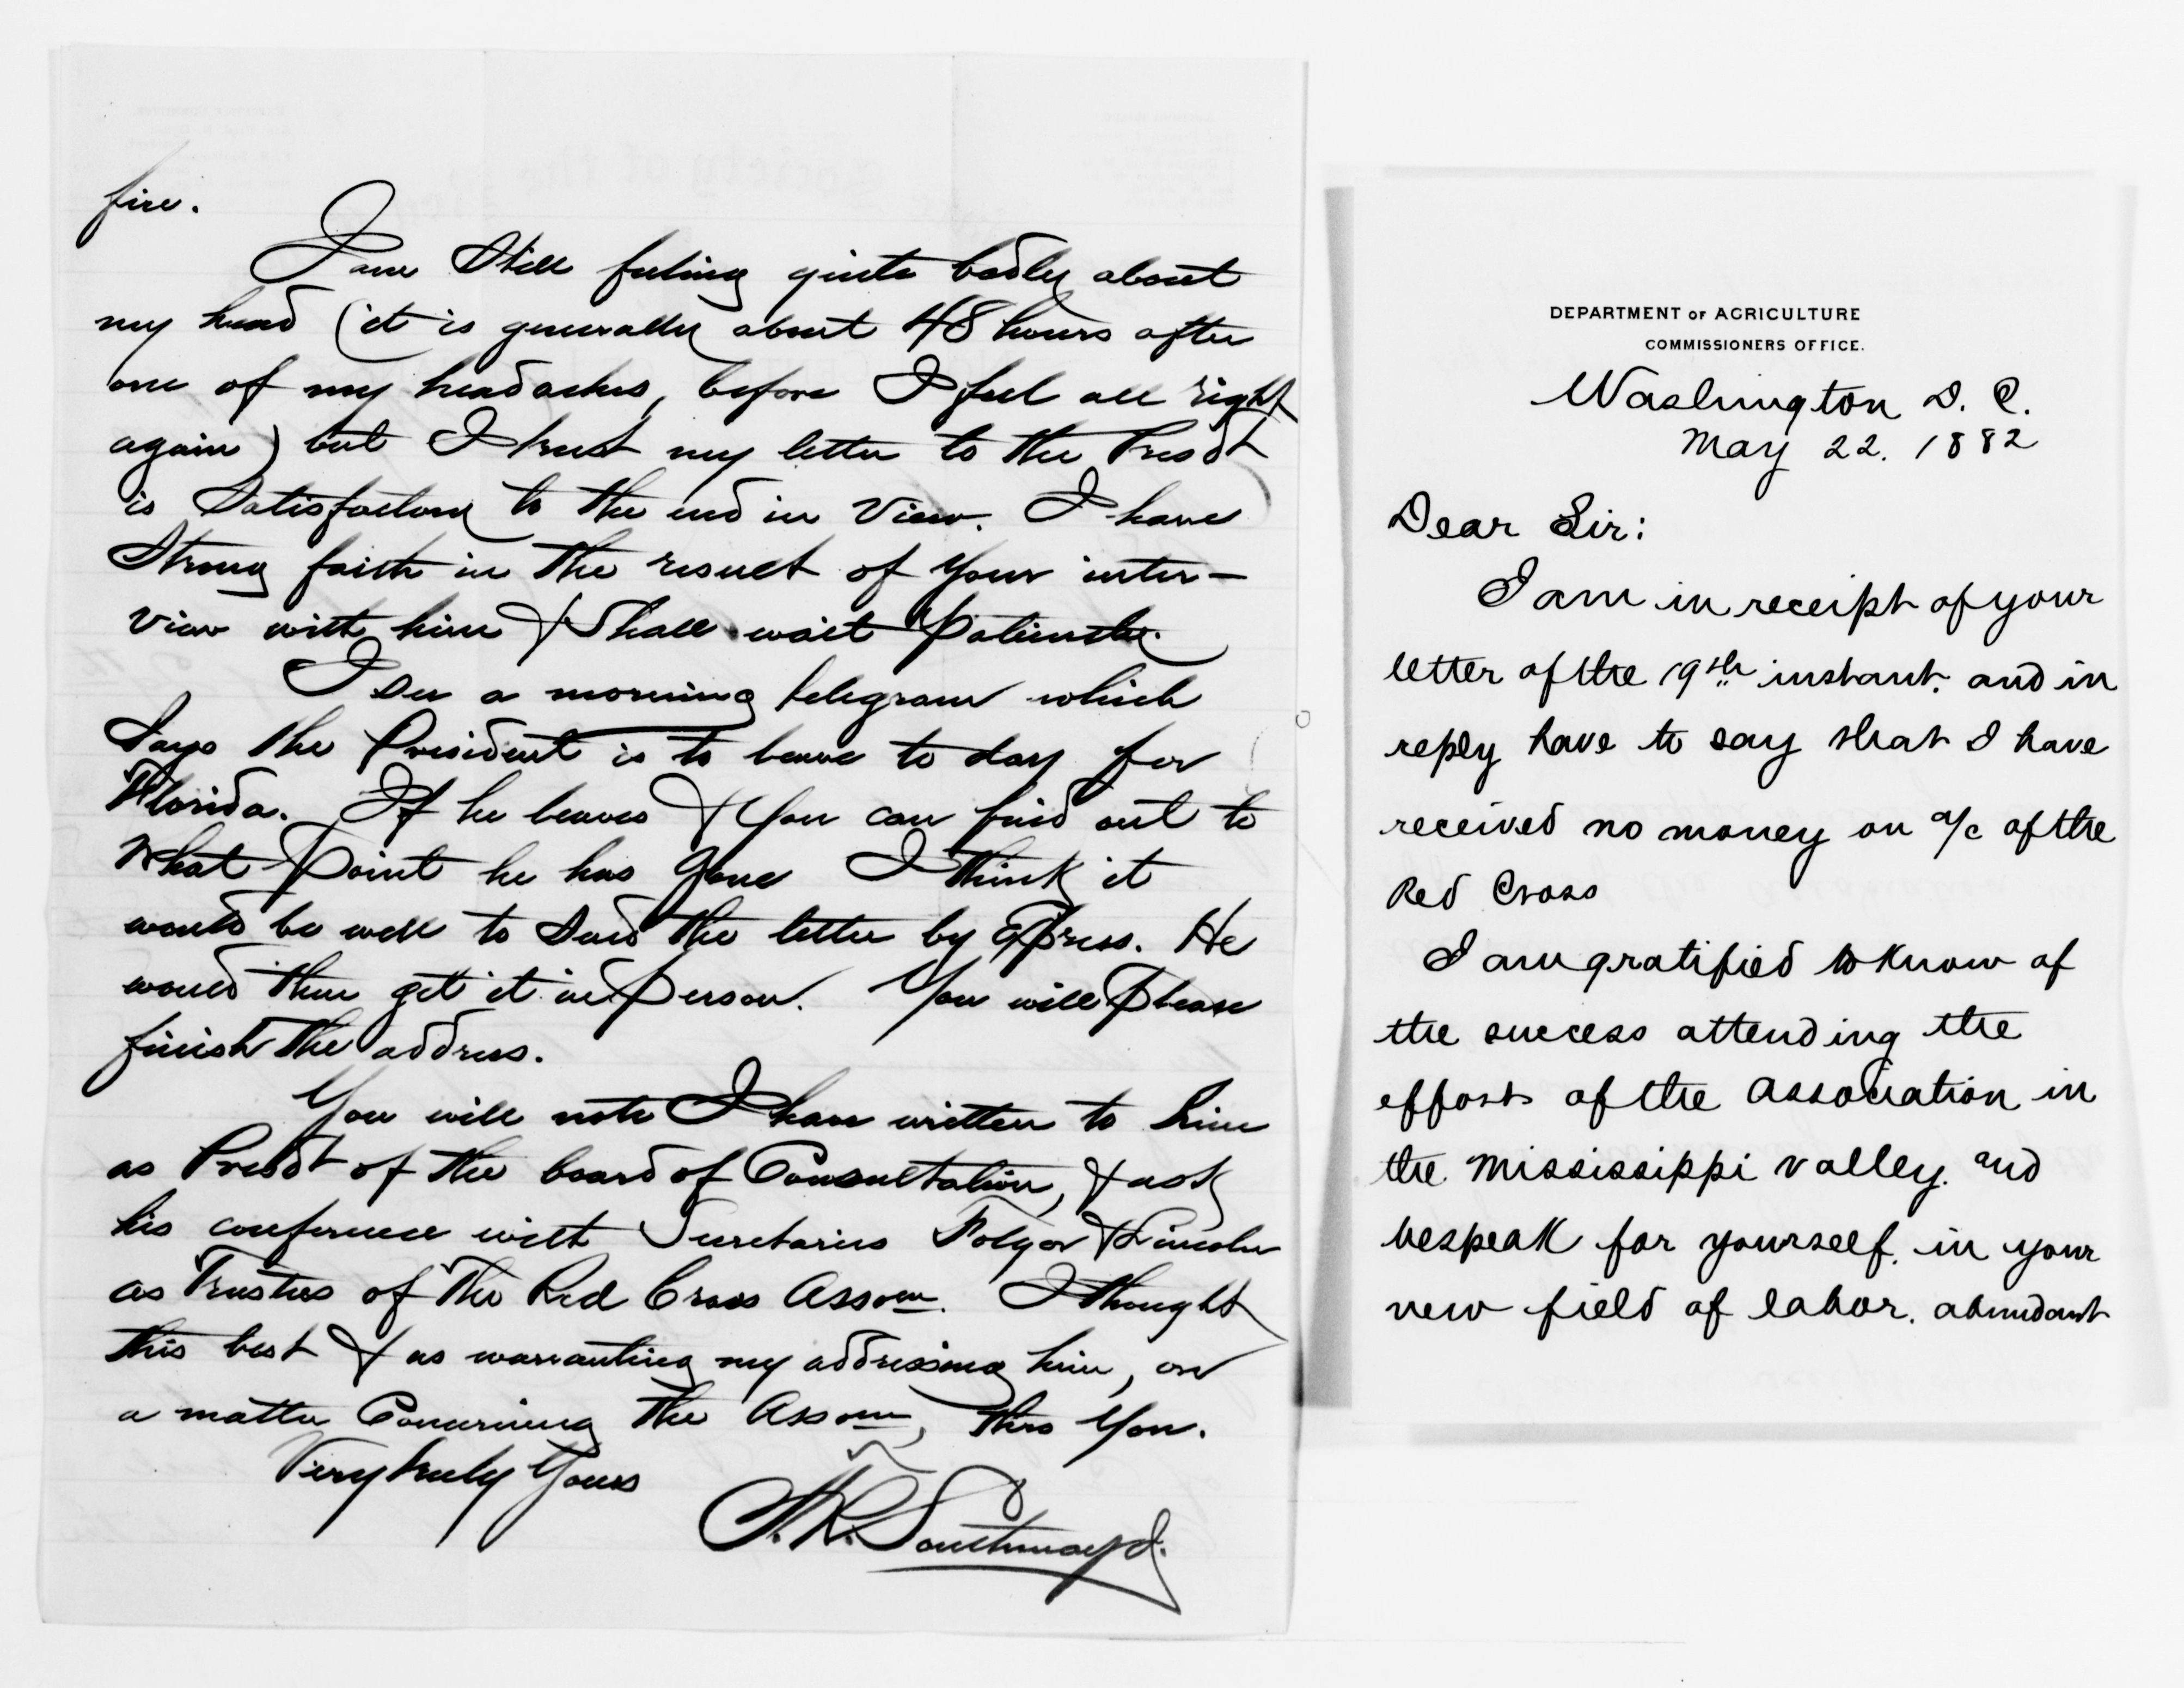 fire.
I am still feeling quite badly about
my head (it is generally about 48 hours after
one of my headaches, before I feel all right
again) but I trust my letter to the Presdt
is Satisfactory to the end in View. I have
Strong faith in the result of your inter-
view with him & Shall wait Patiently.
I see a morning telegram which
Says the President is to leave to day for
Florida. If he leaves & you can find out to
What Point he has gone I think it
would be well to Send the letter by Express. He
would then get it in Person. You will Please
finish the address.
You will note I have written to him
as Presdt of the board of Consultation, & ask
his conference with Secretaries Folger & Lincoln
as Trustees of The Red Cross Assocn. I thought
this best & as warranting my addressing him, on
a matter Concerning the Assocn, thro You.
Very truly Yours
Southmayd.
DEPARTMENT OF AGRICULTURE
COMMISSIONERS OFFICE.
Washington D. C.
May 22. 1882
Dear Sir:
I am in receipt of your
letter of the 19th instant. and in
reply have to say that I have
received no money on a/c of the
Red Cross
I am gratified to know of
the success attending the
effort of the Association in
the Mississippi valley. and
bespeak for yourself. in your
new field of labor. abundant